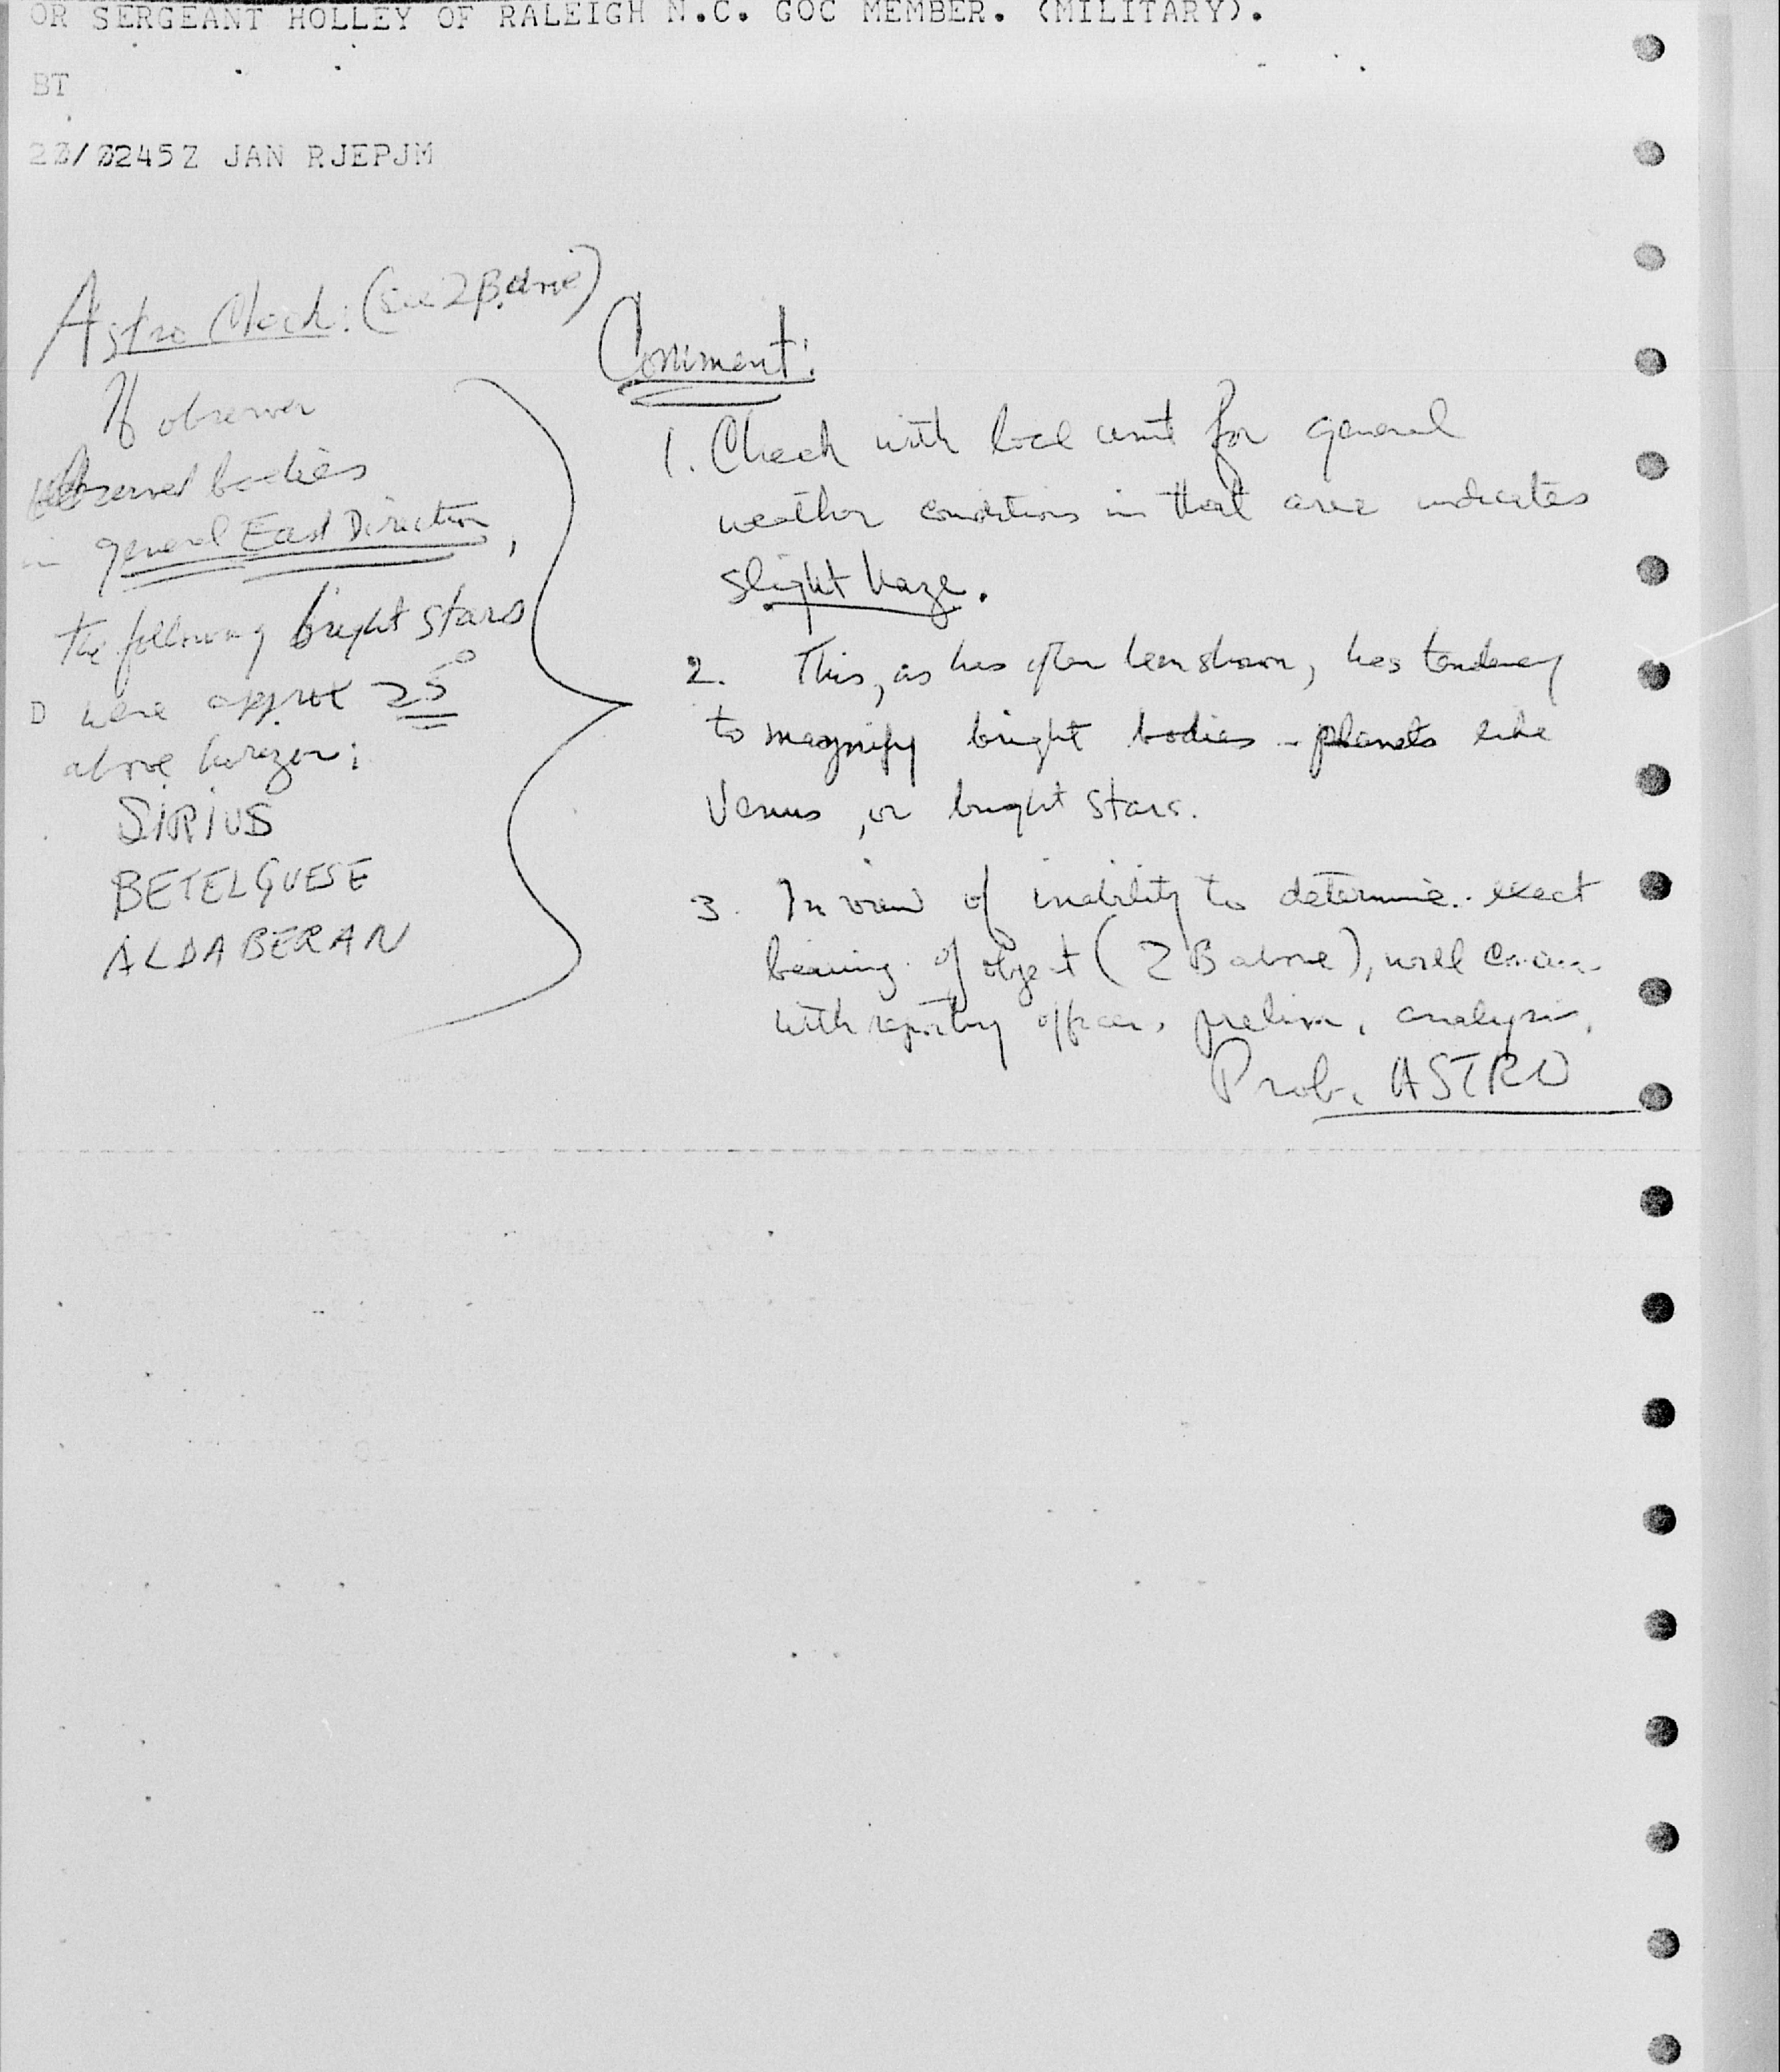 OR SERGEANT HOLLEY OF RALEIGH N.C. GOC MEMBER. (MILITARY).
BT
/0245Z JAN RJEPJM
Astro Check: (See 2B above)
If observer
observed bodies
in general East Direction,
the following bright stars
D were approx 25°
above horizon:
SIRIUS
BETELGUESE
ALDABERAN
Comment:
1. Check with local unit for general
weather conditions in that area indicates
slight haze.
2. This, as has often been shown, has tendency
to magnify bright bodies - planets like
Venus, or bright stars.
3. In view of inability to determine exact
bearing of object (2B above), will
with reporting officers prelim. analysis.
Prob. ASTRO